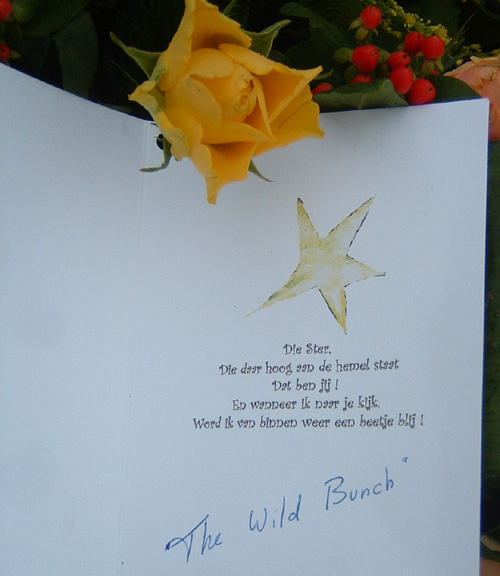 Die Ster,
Die daar hoog aan de hemel staat
Dat ben jij !
En wanneer ik naar je kijk,
Word ik van binnen weer een beetje blij !
The Wild Bunch"